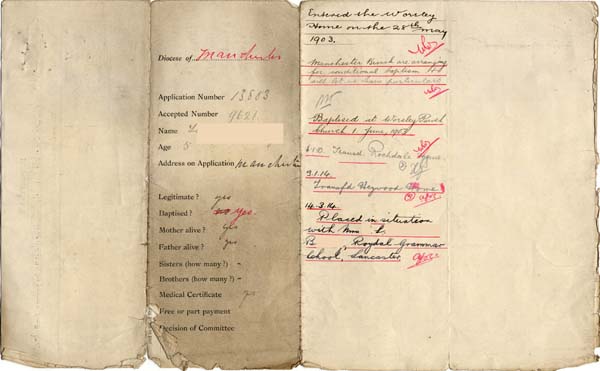 Diocese of Manchester
Application Number 13803
Accepted Number 9621
Name L
Age 5
Address on Application Manchester
Legitimate? yes
Baptised? no yes.
Mother alive? yes
Father alive? yes
Sisters (how many?) -
Brothers (how many?) -
Medical Certificate yes
Free or part payment
Decision of Committee
Entered the Worsley
Home on the 28th May
1903.
Manchester Branch are arranging
for conditional baptism and
will let us have particulars
Baptised at Worsley Parish
Church 1 June, 1903
Transd. Rochdale Home
9.1.14.
Transf'd Heywood Home
14.3.14
Placed in situation
with Mrs L.
B. Roydal Grammar
School, Lancaster